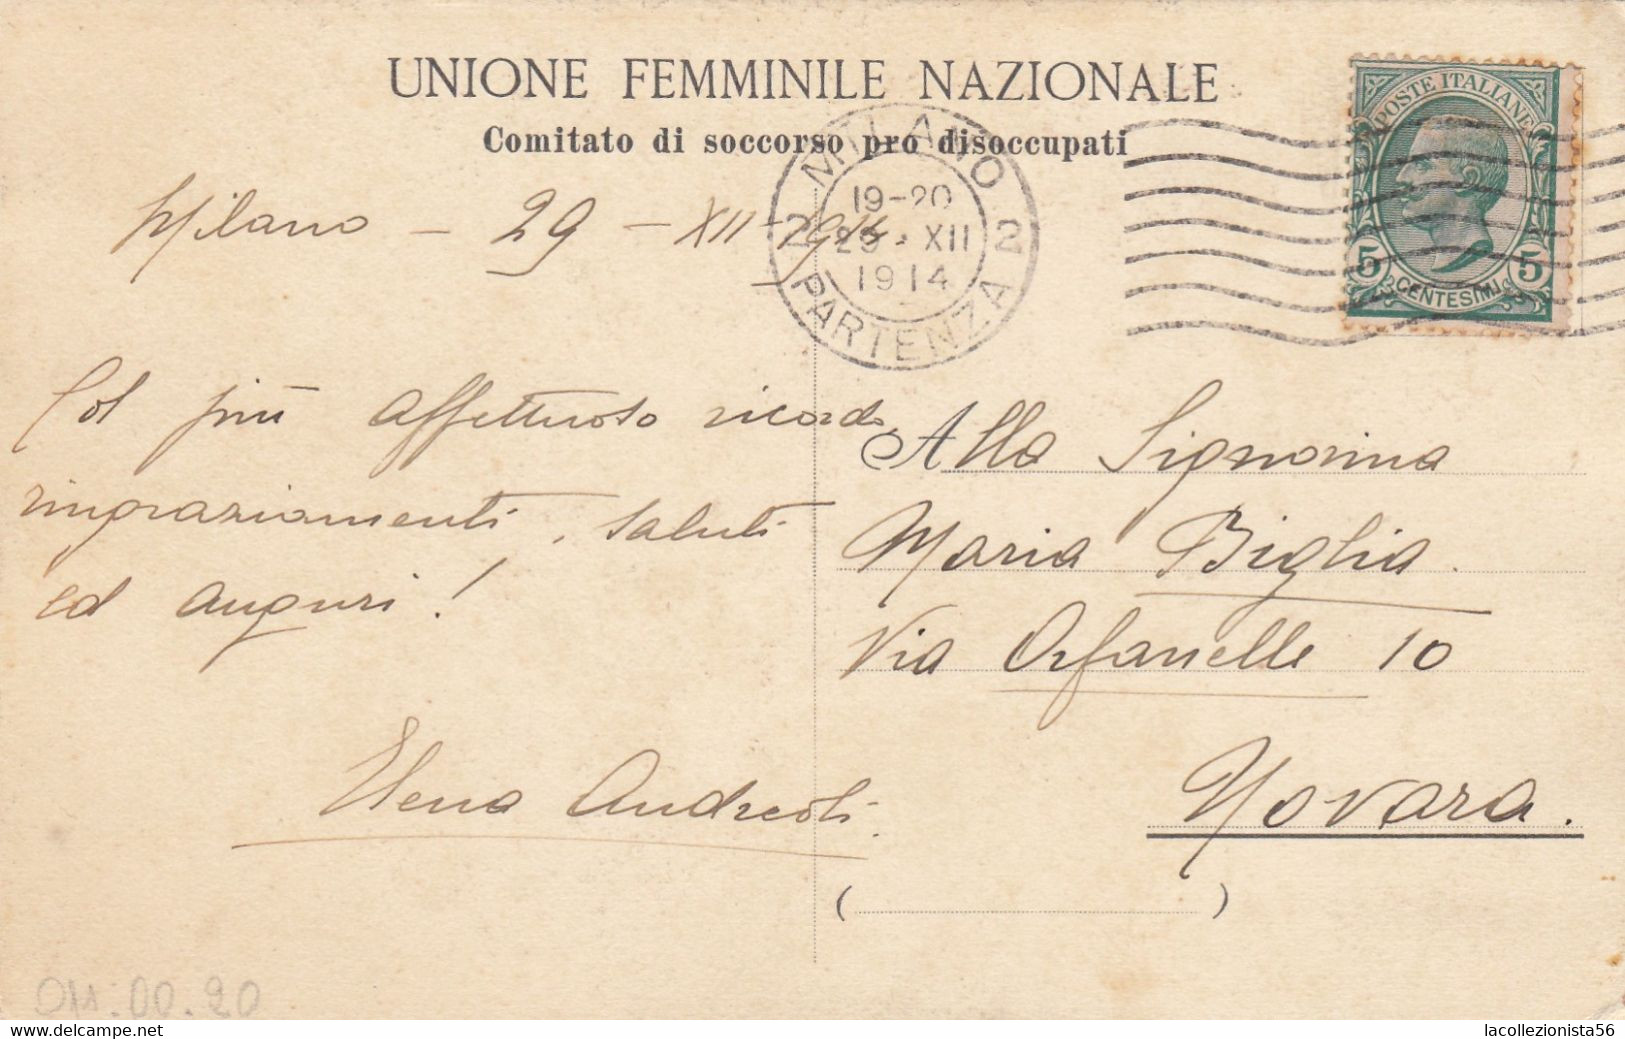 UNIONE FEMMINILE NAZIONALE
Comitato di soccorso pro disoccupati
Milano - 29 - XII - 1914
MILANO
19-20
29 . XII
1914
2 2
PARTENZA
POSTE ITALIANE
5 5
CENTESIMI
Col più affettuoso ricordo,
ringraziamenti, saluti
ed auguri!
Elena Andreoli.
Alla Signorina
Maria Biglia.
Via Orfanelle 10
Novara.
( )
00.20
www.delcampe.net
lacollezionista56